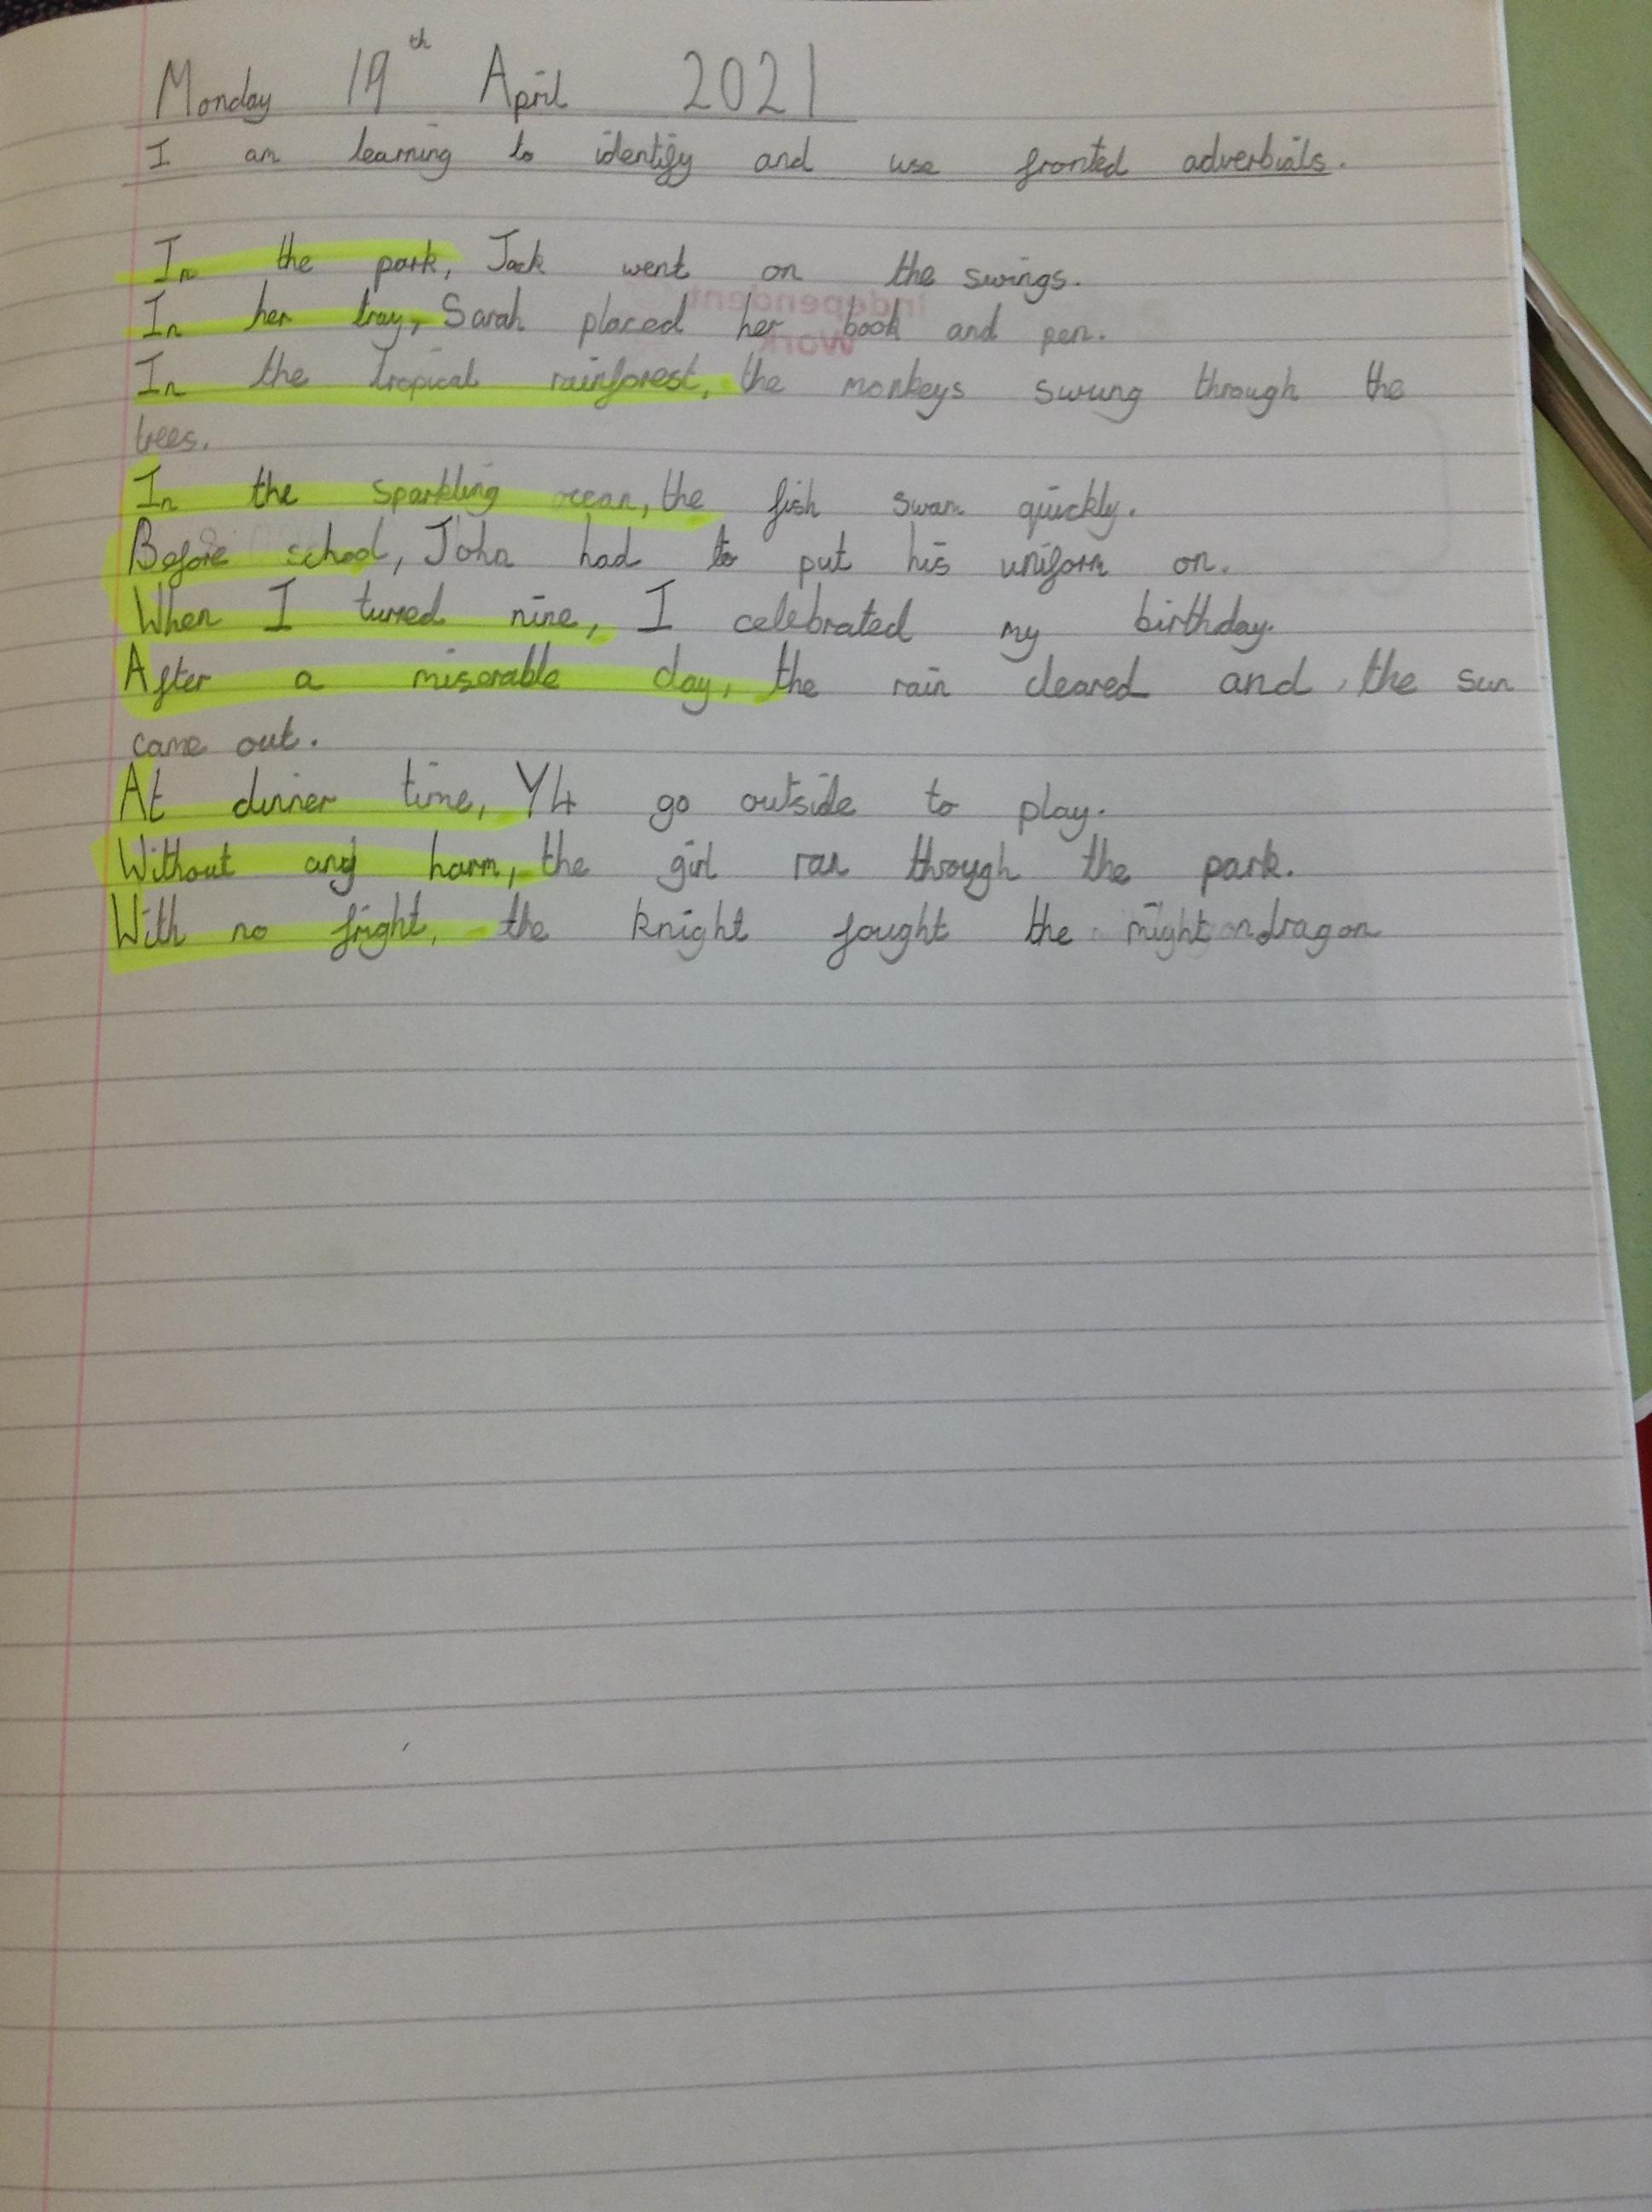 Monday 19th April 2021
I am learning to identify and use fronted adverbials.
In the park, Jack went on the swings.
In her tray, Sarah placed her book and pen.
Independent
Work
In the tropical rainforest, the monkeys swung through the
trees.
In the sparkling ocean, the fish swam quickly.
Before school, John had to put his uniform on.
When I turned nine, I celebrated my birthday.
After a miserable day, the rain cleared and the sun
came out.
At dinner time, Y4 go outside to play.
Without any harm, the girl ran through the park.
With no fright, the knight fought the dragon